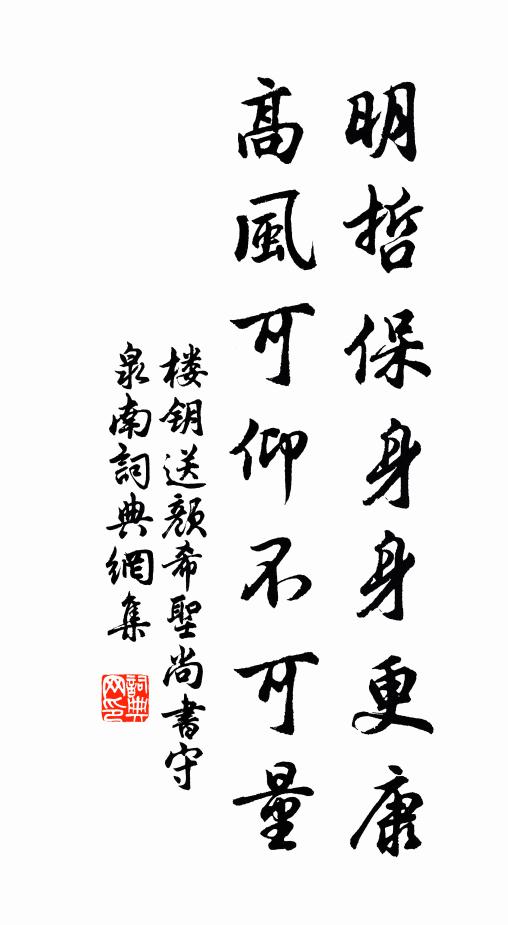 明哲保身身更康
高風可仰不可量
楼钥送颜希聖尚書守
泉南詞典網集
詞典
网印